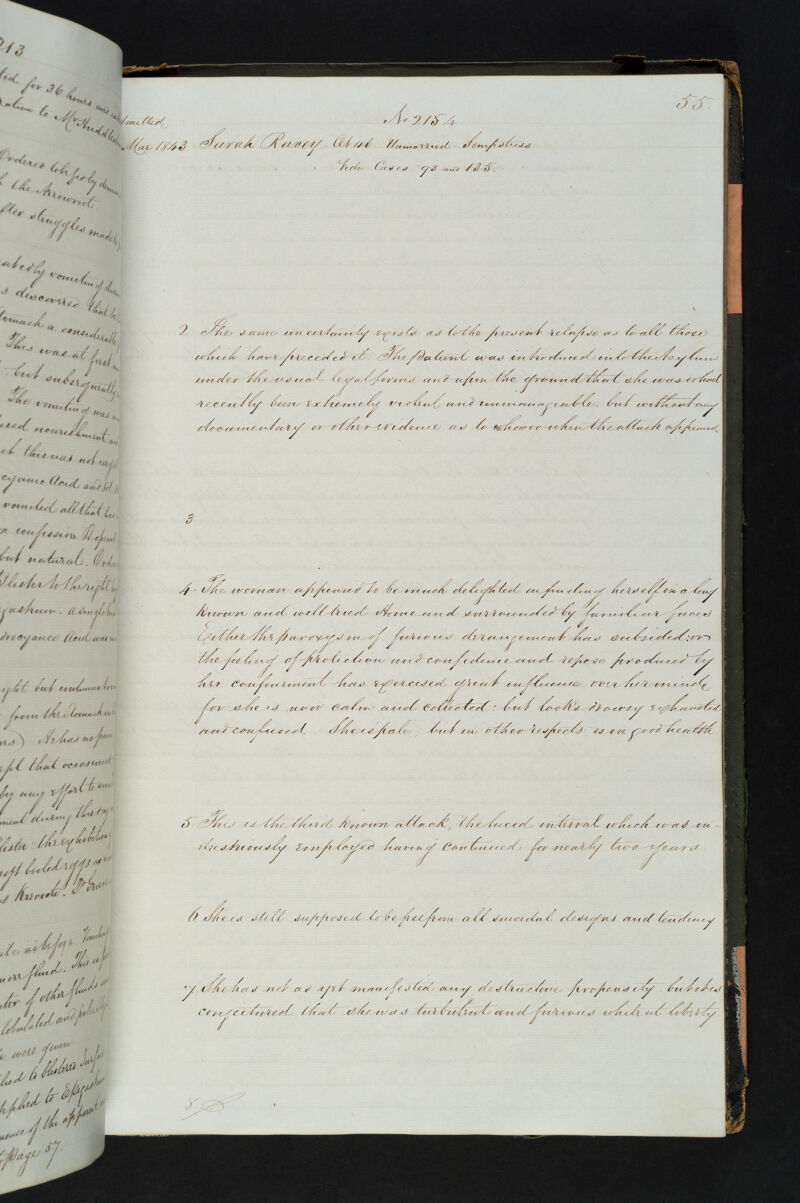 213
ted for 36 hours and
ration to Mr
Ordered to be
the Arrowroot
after struggles made
atedly vomiting
s discovered that
tomach a considerable
This was at first
but subsequently
The vomiting was
used nourishment
but this was not
cyanic Acid and
vomited all that
n confession
but natural.
Blister to the right
gastrium. a single
drocyanic Acid was
ight but continues
from the Stomach
He has no
ept that occasioned
by any effort to
ment during the
lister: the exhibition
soft boiled eggs
Kreosote.
ate as before
more fluid. This
ter of other fluids
lobulated and
were given
lied to blistered Surface
applied to Epigas
uence of the apparent
Page 57.
55.
No 2154
dmitted
Mar 1843 Sarah Ravey Æt 46 Unmarried Sempstress
Vide Cases 93 and 135.
2 The same uncertainty exists as to the present relapse as to all those
which have preceded it. The patient was introduced into the Asylum
under the usual legal forms and upon the ground that she was or had
recently been extremely violent and unmanageable: but without any
documentary or other evidence as to how or when the attack appeared
3
4 The woman appeared to be much delighted on finding herself in a long
known and well tried Home and surrounded by familiar faces
Either the paroxysm of furious derangement has subsided: or
the feeling of protection and confidence and repose produced by
her confinement has exercised great influence over her mind
for she is now calm and collected: but looks drowsy exhausted
and confused. She is pale, but in other respects is in good health
5 This is the third known attack, the lucid interval which was in-
dustriously employed having continued for nearly two years
6 She is still supposed to be free from all suicidal designs and tendency
7 She has not as yet manifested any destructive propensity. but it is
conjectured that she was turbulent and furious while at liberty
8